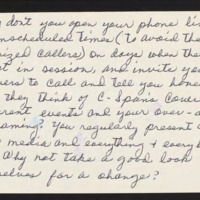 don't you open your phone lin
nscheduled times (to avoid the
ized callers) on days when the
t in session, and invite yo
ers to call and tell you hone
they think of C-Span's cover
rent events and your over-a
aming? You regularly present
media and everything + every
Why not take a good look
selves for a change?